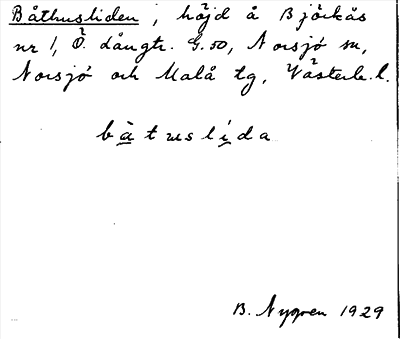 Båthusliden, höjd å Björkås
nr 1, Ö. Långtr. G.50, Norsjö sn,
Norsjö och Malå tg, Västerb. l.
bàtuslída
B. Nygren 1929